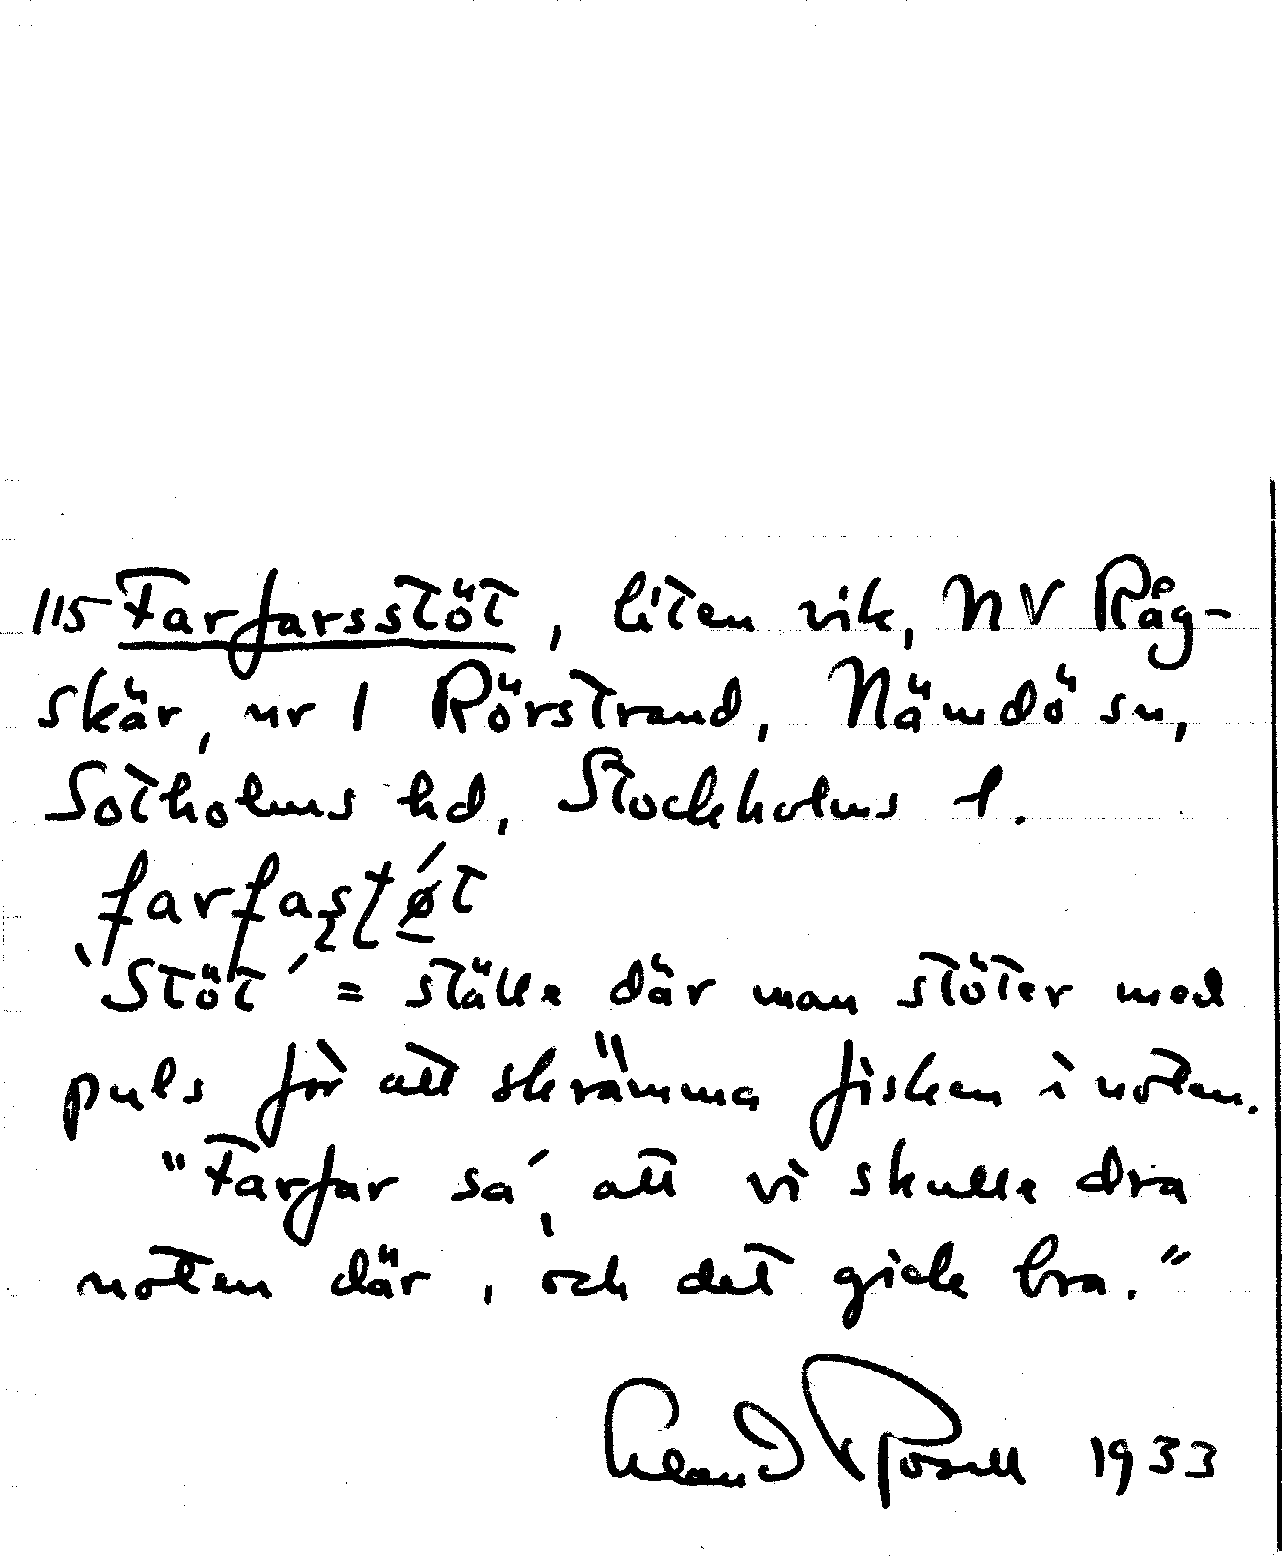 115 Farfarsstöt, liten vik, NV Råg-
skär, nr 1 Rörstrand, Nämdö sn,
Sotholms hd, Stockholms l.
farfaʂʈǿ̠t
`Stöt´ = ställe där man stöter med
puls för att skrämma fisken i noten.
"Farfar sa´, att vi skulle dra
noten där, och det gick bra."
Rosell 1933